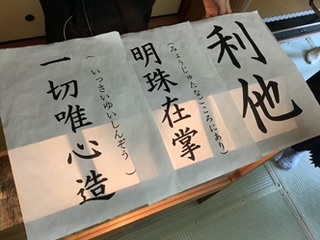 利他
明珠在掌
(みょうじゅたなごころにあり)
一切唯心造
(いっさいゆいしんぞう)